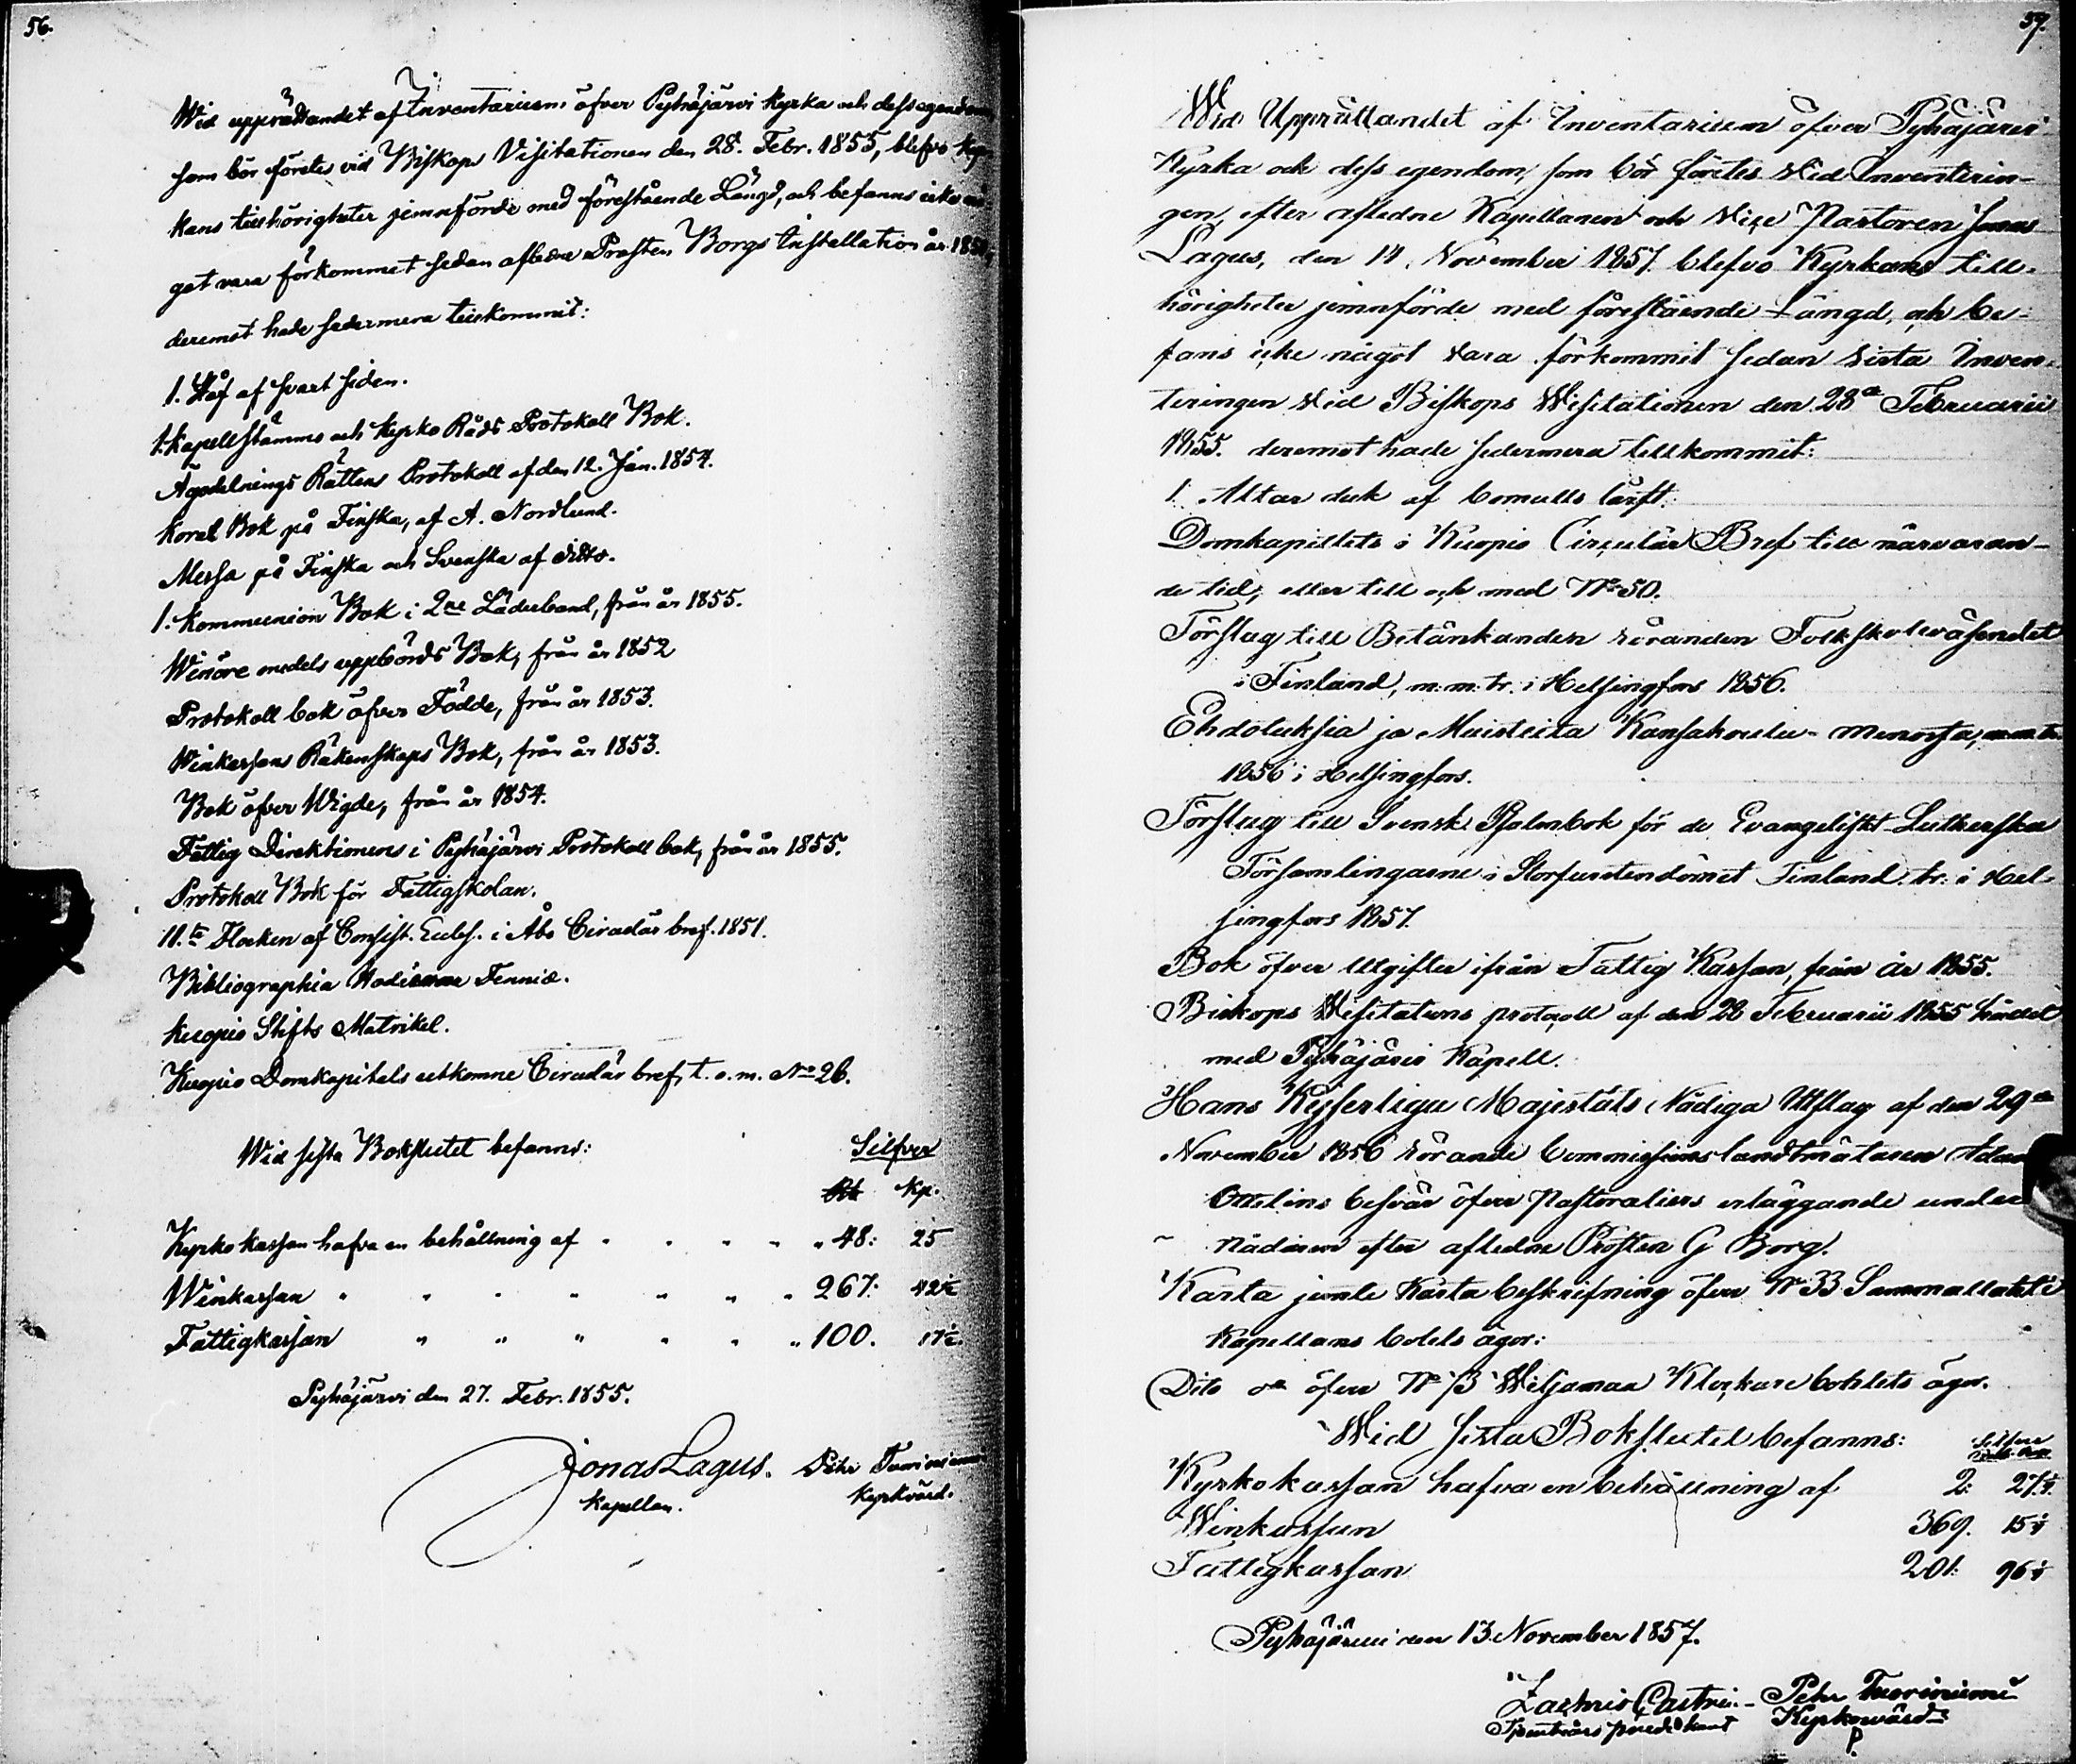 56.
Wid upprättandet af Inventarium öfver Pyhäjärvi Kyrka och dess egendom
som bör företes vid Biskops Visitationen den 28. Febr. 1855, blefvo Kyr-
kans tillhörigheter jemnförde med förestående Längd, och befanns icke nå-
got vara förkommet sedan aflidne Prosten Borgs Installation år
deremot hade sedermera tillkommit:
1. Håf af svart siden.
1. Kapellstämmo och Kyrko Råds Protokoll Bok.
Ägodelnings Rättens Protokoll af den 12. Jan. 1854.
Koral Bok på Finska, af A. Nordlund.
Messa på Finska och Svenska af ditto.
1. Kommunion Bok i 2ne Läderband, från år 1855.
Winöre medels uppbörds Bok, från år 1852
Protokoll bok öfver Födde, från år 1853.
Winkassans Räkenskaps Bok, från år 1853.
Bok öfver Wigde, från år 1854.
Fattig Direktionens i Pyhäjärvi Protokoll bok, från år 1855.
Protokoll Bok för Fattigskolan.
11.te Flocken af Consist. Eccles. i Åbo Ciradär bref. 1851.
Bibliographia Hodierna Fenniæ.
Kuopio Stifts Matrikel.
Kuopio Domkapitels utkomne Cirulär bref, t. o. m. No 26.
Wid sista Bokslutet befanns: Silfver
Rb. Kp.
Kyrko kassan hafva en behållning af " " " " " 48: 25
Winkassan " " " " " " " 267: 42½
Fattigkassan " " " " " " 100. 17½.
Pyhäjärvi den 27. Febr. 1855.
Jonas Lagus. Pehr Tuoriniemi
Kapellan. Kyrkvärd.
57.
Wid Upprättandet af Inventarium öfver Pyhäjärvi
Kyrka och dess egendom, som bör företes vid Inventerin-
gen, efter aflidne Kapellanen och Vice Pastoren Jonas
Lagus, den 14. November 1857. blefvo Kyrkans till-
hörigheter jemnförde med förestående Längd, och be-
fans icke något vara förkommit sedan sista Inven-
teringen vid Biskops Visitationen den 28de Februarii
1855. deremot hade sedermera tillkommit:
1. Altar duk af bomulls lärft.
Domkapitlets i Kuopio Circulär Bref till närvaran-
de tid, eller till och med No 50.
Förslag till Betänkanden röranden Folkskolväsendet
i Finland, m: m: tr. i Helsingfors 1856.
Ehdoluksia ja Muisteita Kansakoulu-menosta, m. m. tr.
1856 i Helsingfors.
Förslag till Svensk Psalmbok för de Evangeliskt-Lutherska
Församlingarne i Storfurstendömet Finland. tr: i Hel-
singfors 1857.
Bok öfver Utgifter ifrån Fattig Kassan, från år 1855.
Biskops Visitations protocoll af den 28 Februarii 1855 hållet
med Pyhäjärvi Kapell.
Hans Kejserliga Majestäts Nådiga Utslag af den 29de
November 1856 rörande Commissions landtmätaren Adam
Ottelins besvär öfver Pastoraliers erläggande under
Nådåren efter aflidne Prosten G Borg.
Karta jemte Karta beskrifning öfver No 33 Sammallahti
Kapellans bohls ägor:
Dito öfver No 13 Wiljamaa Klockare bohlets ägor.
Wid sista Bokslutet befanns: Silfver
Kyrkokassan hafva en behållning af 2: 27.¼.
Winkassan 369. 15¼
Fattigkassan 201: 96¼
Pyhäjärvi den 13 November 1857.
Zachris Castrén. Pehr Tuoriniemi
Tjenstvårs predikant Kyrkovärd
P.